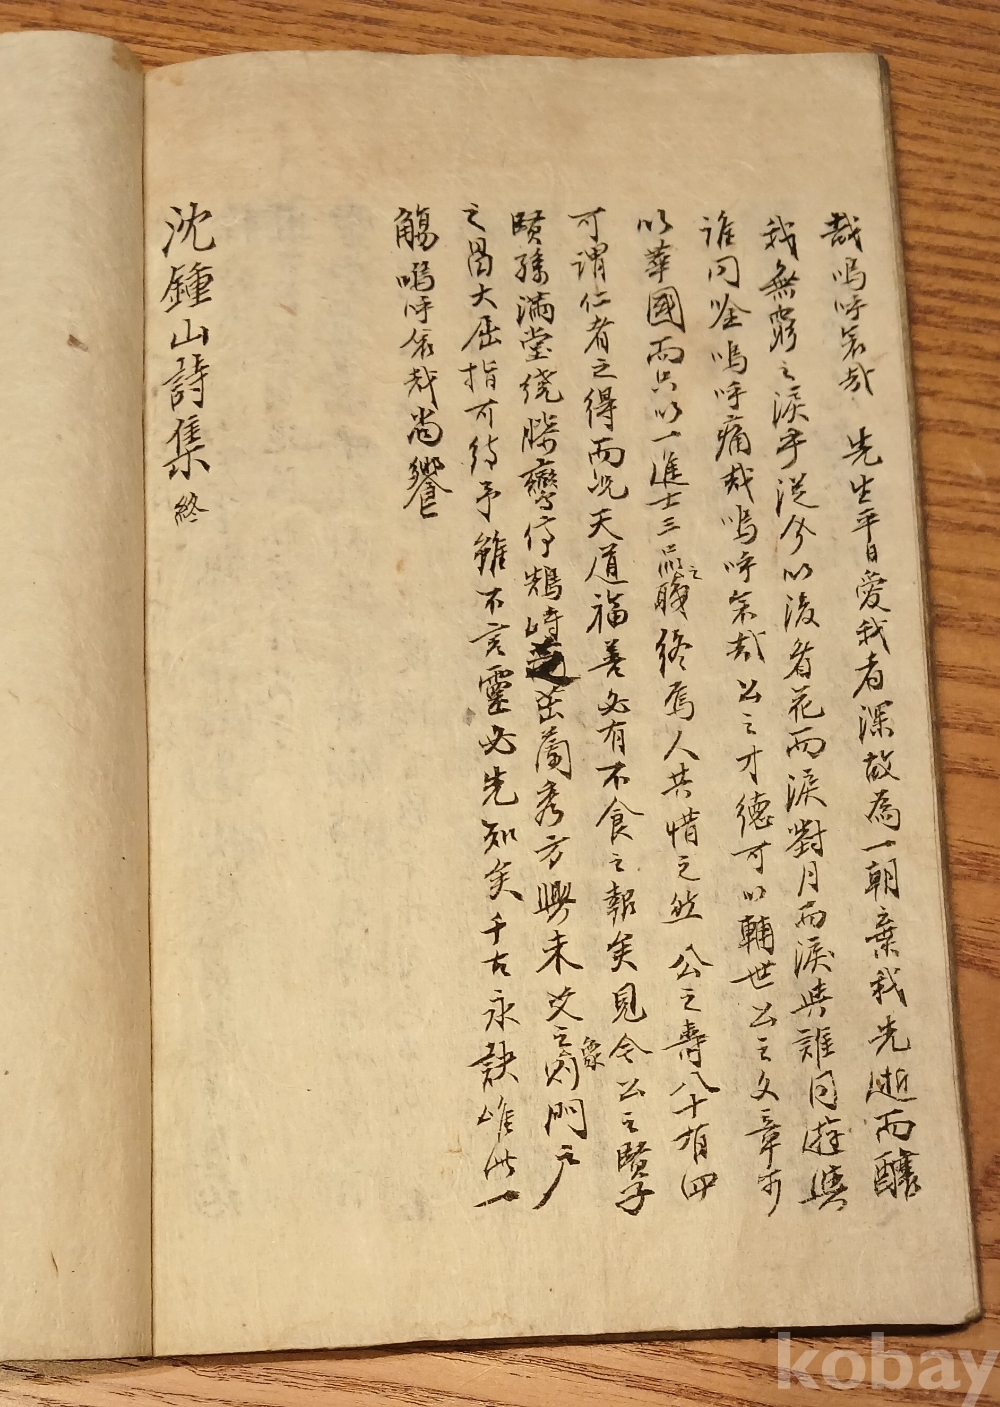 哉嗚呼哀哉 先生平日愛我者深故為一朝棄我先逝而釀
我無窮之淚乎從今以後看花而淚對月而淚與誰同遊與
誰同吟嗚呼痛哉嗚呼哀哉公之才德可以輔世公之文章可
以華國而只以一進士三品之職終焉人共惜之然 公之壽八十有四
可謂仁者之得而況天道福善必有不食之報矣見今公之賢子
賢孫滿堂繞膝鸞停鵠峙茁蘭秀方興未艾之象門戶
之昌大屈指可待予雖不言靈必先知矣千古永訣唯此一
觴嗚呼哀哉尚饗
沈鍾山詩集 終
kobay